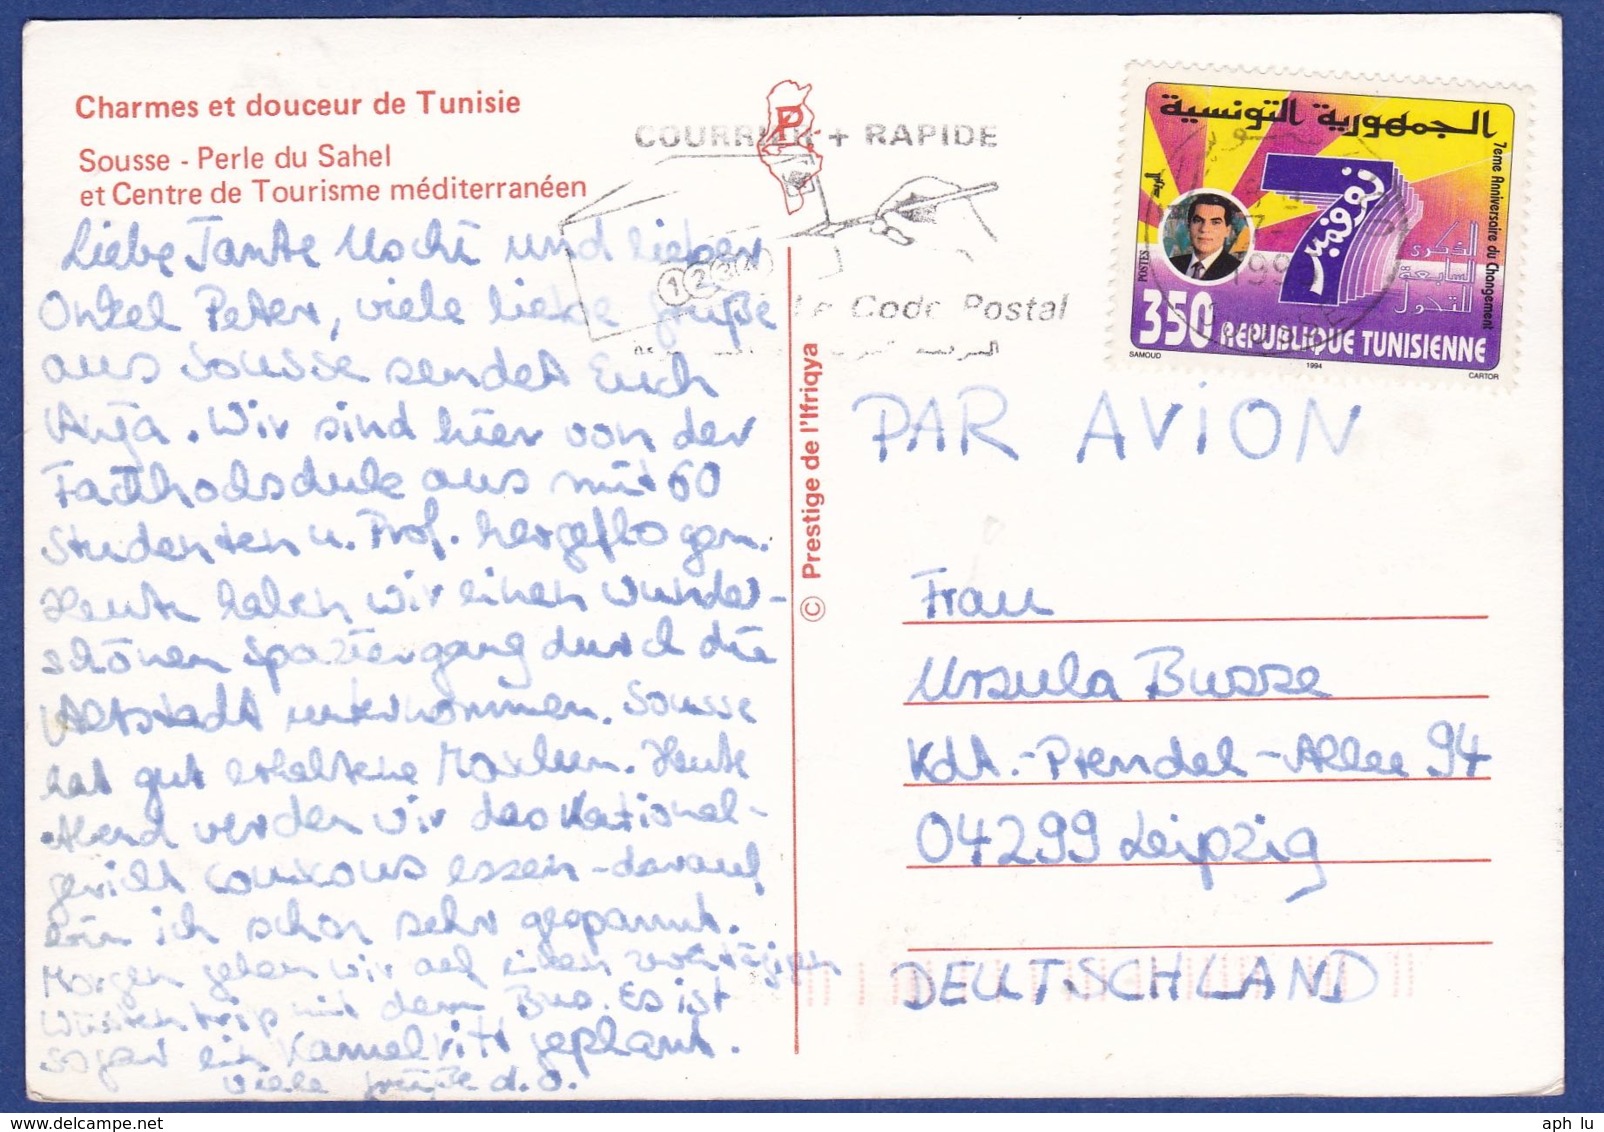 Charmes et douceur de Tunisie
Sousse - Perle du Sahel
et Centre de Tourisme méditerranéen
Liebe Tante Uschi und lieber
Onkel Peter, viele liebe Grüße
aus Sousse sendet Euch
Anja. Wir sind hier von der
Fachhochschule aus mit 60
Studenten u. Prof. hergeflogen.
Heute haben wir einen wunder-
schönen Spaziergang durch die
Altstadt unternommen. Sousse
hat gut erhaltene Mauern. Heute
Abend werden wir das National-
gericht Couscous essen - darauf
bin ich schon sehr gespannt.
Morgen gehen wir auf einen zweitägigen
Wüstentrip mit dem Bus. Es ist
sogar ein Kamelritt geplant.
Viele Grüße d. O.
© Prestige de l'Ifriqya
P
COURRIER + RAPIDE
1 2 3 4
Le Code Postal
الجمهورية التونسية
7eme Anniversaire du Changement
7 نوفمبر
الذكرى
السابعة
للتحول
POSTES
350 REPUBLIQUE TUNISIENNE
SAMOUD
1994
CARTOR
PAR AVION
Frau
Ursula Busse
Kdt.-Prendel-Allee 94
04299 Leipzig
DEUTSCHLAND
aph_lu